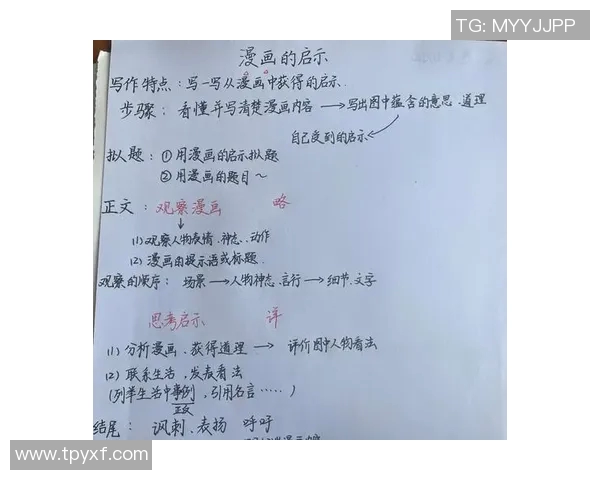 TG: MYYJJPP
漫画的启示
写作特点：写一写从漫画中获得的启示.
步骤：看懂并写清楚漫画内容 → 写出图中蕴含的意思、道理
自己受到的启示
拟人题：① 用漫画的启示拟题
② 用漫画的题目～
正文：观察漫画 略
(1) 观察人物表情、神志、动作
(2) 漫画的提示语或标题.
观察的顺序：场景 → 人物神态、言行 → 细节、文字
思考启示 详
(1) 分析漫画、获得道理 → 评价图中人物看法
(2) 联系生活，发表看法
(列举生活中事例，引用名言……)
正反
结尾：讽刺、表扬 呼吁
网站地图
www.tpyxf.com